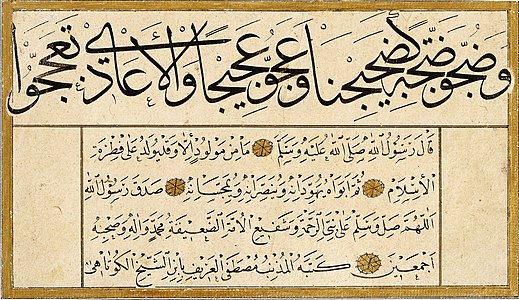 وضجوا ضجة كضجيجنا وعجوا عجيجا والأعادي تعججوا
قال رسول الله صلى الله عليه وسلم ما من مولود إلا وقد يولد على فطرة
الإسلام ثم أبواه يهودانه وينصرانه ويمجسانه صدق رسول الله
اللهم صل وسلم على نبي الرحمة وشفيع الأمة الضعيفة محمد وآله وصحبه
أجمعين كتبه المذنب مصطفى العريف بابن الشيخ الكوتاهي